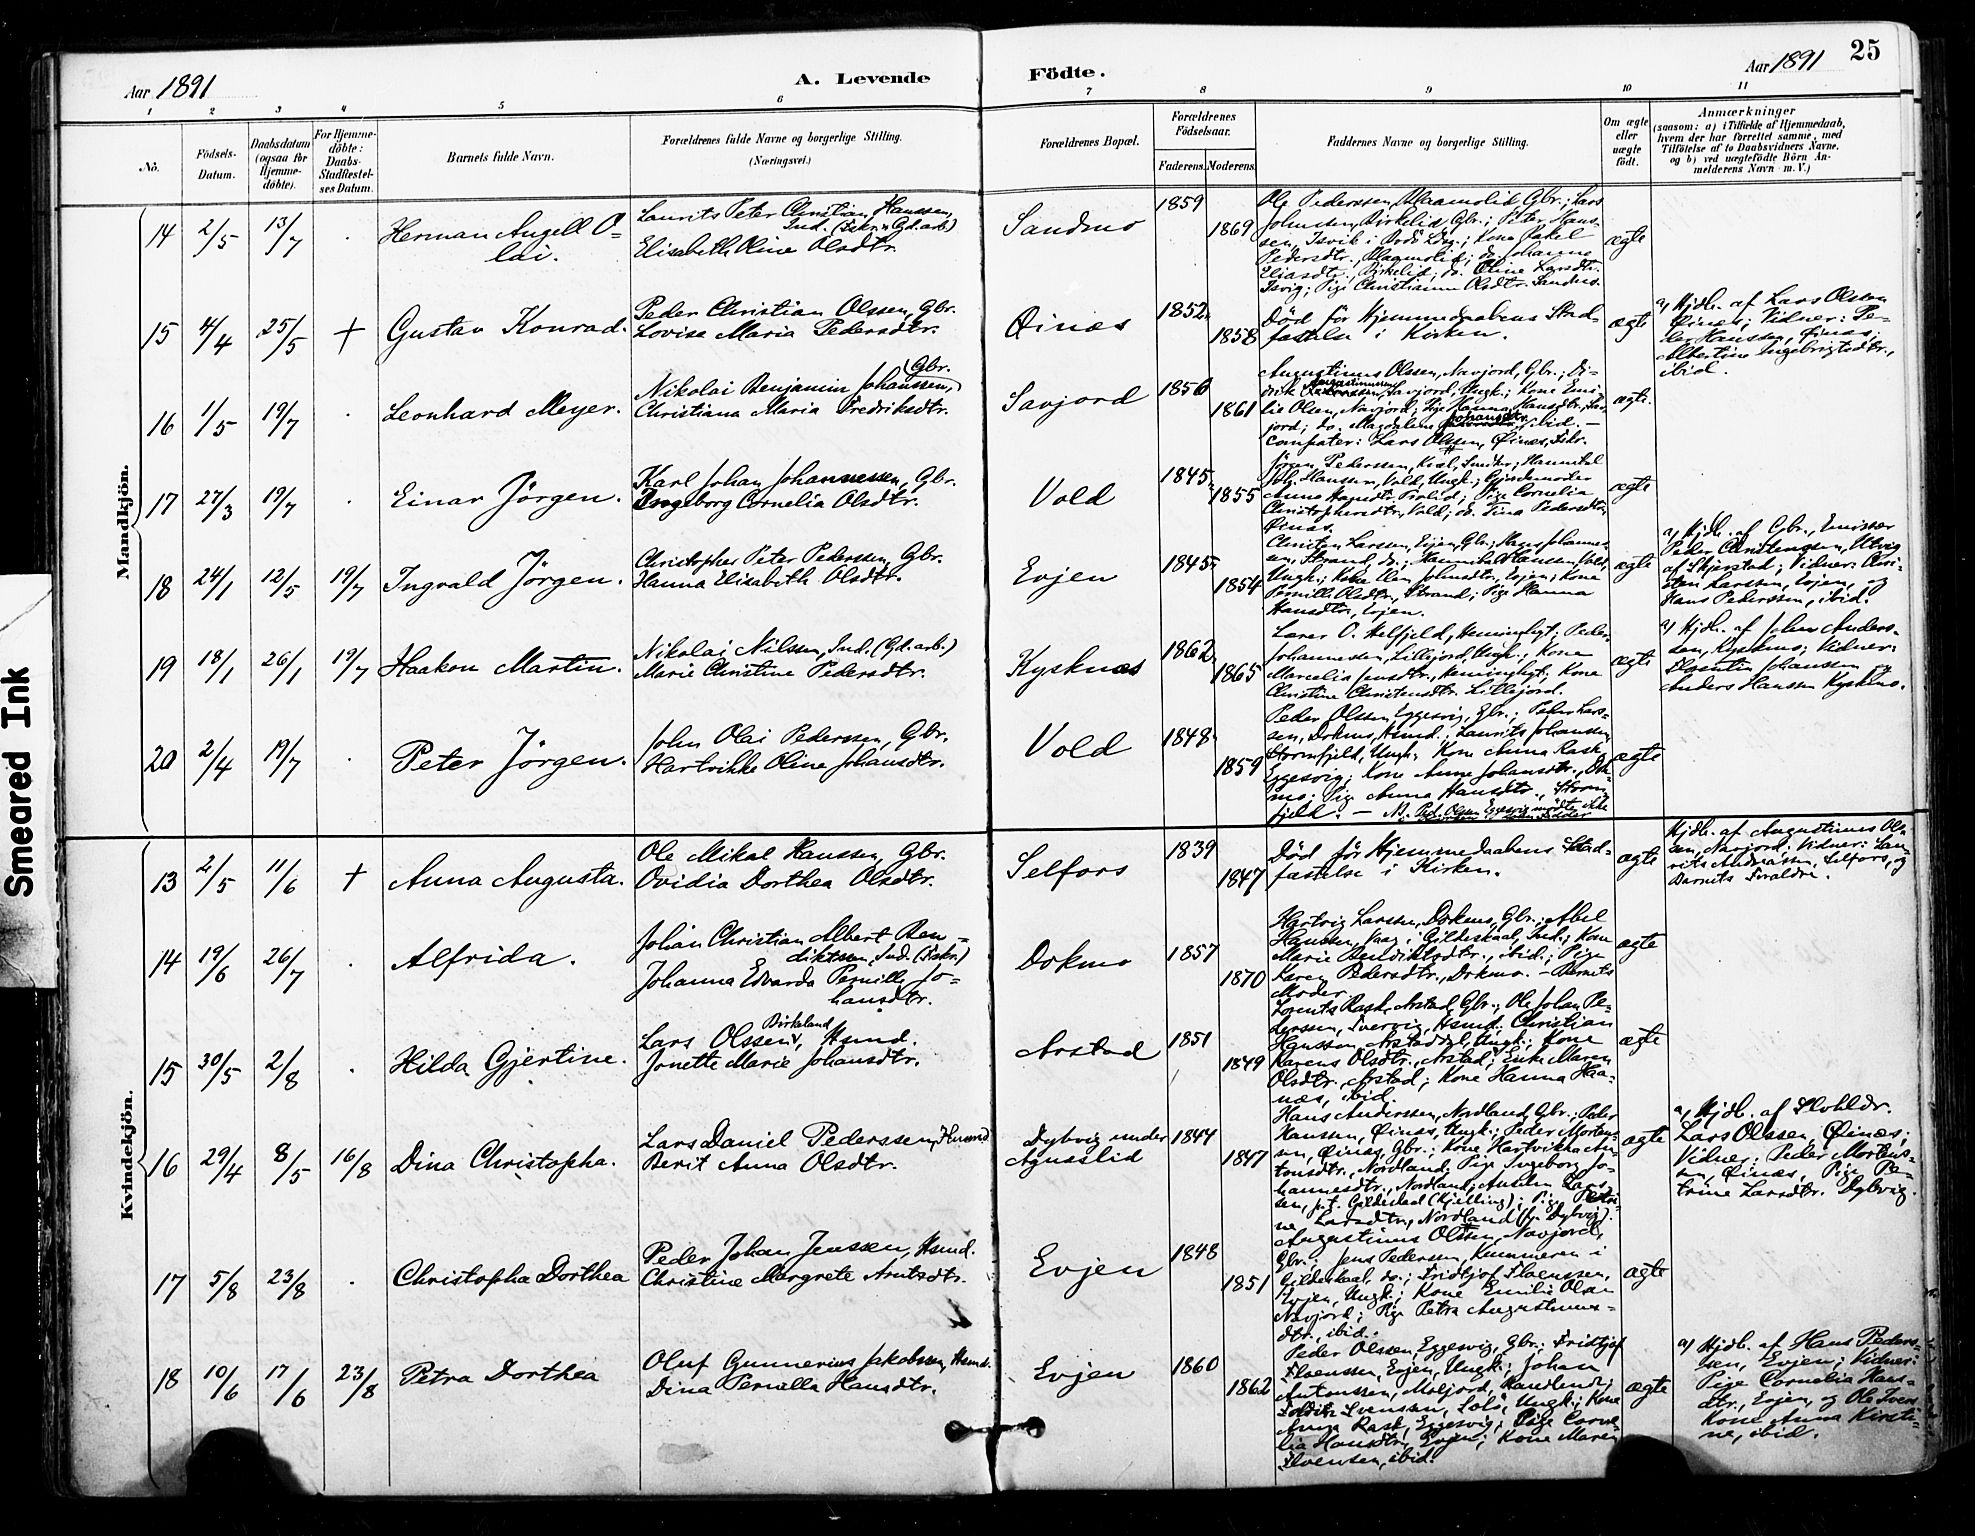 25
Aar 1891
A. Levende
Födte.
Aar 1891
1 2 3 4 5 6 7 8 9 10 11
No.
Födsels-
Datum.
Daabsdatum
(ogsaa for
Hjemme-
döbte).
For Hjemme-
döbte:
Daabs-
Stadfæstel-
ses Datum.
Barnets fulde Navn.
Forældrenes fulde Navne og borgerlige Stilling.
(Næringsvei.)
Forældrenes Bopæl.
Forældrenes
Födselsaar.
Faderens. Moderens.
Faddernes Navne og borgerlige Stilling.
Om ægte
eller
uægte
født.
Anmærkninger
(saasom: a) i Tilfælde af Hjemmedaab,
hvem der har forrettet samme, med
Tilföielse af to Daabsvidners Navne.
og b) ved uægtefödte Börn An-
melderens Navn m. V.)
Mandkjön.
14 2/5 13/7 . Herman Angell O-
lai.
Laurits Peter Christian Hanssen,
Ind. (Fskr. & Gd.arb)
Elisabeth Oline Olsdtr.
Sandmo
1859
1869
Ole Pederssen, Blaamolid, Gbr.; Lars
Johnssen, Birkelid, Gbr.; Peter Hans-
sen, Tsvik i Bodö Ldsg.; Kone Rakel
Pedersdtr., Blaamolid; do. Johanna
Eliasdtr., Birkelid; do. Oline Larsdtr.
Tsvig; Pige Christianne Olsdtr. Sandmo.
ægte
15 4/4 25/5 + Gustav Konrad.
Peder Christian Olssen, Gbr.
Lovise Maria Pedersdtr.
Øinæs
1852
1858
Död för Hjemmedaabens Stad-
fæstelse i Kirken.
ægte
a) Hjdb. af Lars Olssen
Øinæs; Vidner: Pe-
der Hanssen, Øinæs;
Albertine Ingebrigtsdtr.,
ibid.
16 1/5 19/7 . Leonhard Meyer.
(Gbr.
Nikolai Benjamin Johanssen,
Christiana Maria Fredriksdtr.
Savjord
1856
1861
Augustinus Olssen, Navjord, Gbr.; Di-
drik Augustinussen, Savjord, Ungk.; Kone Emi-
lie Olsen, Navjord; Pige Hanna Hansdtr., Sav-
jord; do. Magdalene Johansdtr., ibid. –
compater: Lars Olssen, Øinæs, Fskr.
ægte.
17 27/3 19/7 . Einar Jörgen.
Karl Johan Johannessen, Gbr.
Ingeborg Cornelia Olsdtr.
Vold
1845
1855
Jörgen Pederssen, Kval, Snedker; Hannibal
Joh. Hanssen, Vold, Ungk.; Gjordemoder
Anne Hansdtr. Molid; Pige Cornelia
Christophersdtr., Vold; do. Tina Pedersdtr.
Øinæs.
ægte
18 24/1 12/5 19/7 Ingvald Jörgen.
Christopher Peter Pederssen, Gbr.
Hanna Elisabeth Olsdtr.
Evjen
1845
1854
Christen Larssen, Evjen, Gbr.; Hans Johans-
sen, Strand, do.; Hannibal Hanssen, Vold,
Ungk.; Kone Elen Johnsdtr., Evjen; Kone
Pernille Olsdtr., Strand; Pige Hanna
Hansdtr., Evjen.
ægte
a) Hjdb. af Gbr., Emissær
Peder Christenssen, Utvig
af Skjerstad; Vidner: Chri-
sten Larssen, Evjen, og
Hans Pederssen, ibid.
19 18/1 26/1 19/7 Haakon Martin.
Nikolai Nilssen, Ind. (Gd.arb.)
Marie Christine Pedersdtr.
Kysknæs
1862
1865
Larer O. Helfjeld, Hemingligt; Peder
Johannessen, Lillejord, Ungk.; Kone
Marcelia Jensdtr., Hemingligt; Kone
Christine Christensdtr. Lillejord.
ægte
a) Hjdb. af John Anders-
sen, Kysknæs; Vidner:
Johanssen og
Anders Hanssen Kysknæs.
20 2/4 19/7 . Peter Jörgen.
John Olai Pederssen, Gbr.
Hartvikke Oline Johansdtr.
Vold
1848
1859
Peder Olssen, Eggesvig, Gbr.; Peder Lars-
sen, Dokmo, Hsmd.; Laurits Johanssen
Stormfjeld, Ungk.; Kone Anna Rask,
Eggesvig; Kone Anne Johansdtr., Dok-
mo; Pige Anna Hansdtr., Storm-
fjeld. – NB. Ped. Olssen Eggesvig mødte ikke
ægte
Kvindekjön.
13 2/5 11/6 + Anna Augusta.
Ole Mikal Hanssen, Gbr.
Ovidia Dorthea Olsdtr.
Selfors
1839
1847
Död för Hjemmedaabens Stad-
fæstelse i Kirken.
ægte
Hjdb. af Augustinus Ol-
sen, Navjord. Vidner: Lau-
rits Andreassen, Selfors, og
Barnets Foraldre.
14 19/6 26/7 . Alfrida.
Johan Christian Albert Ben-
diktssen, Ind. (Fiskr.)
Johanna Edvarda Pernille Jo-
hansdtr.
Dokmo
1857
1870
Hartvig Larssen, Dokmo, Gbr.; Abel
Hanssen, Vaag i Gildeskaal, Ind.; Kone
Marie Bendiktsdtr., ibid.; Pige
Karen Pedersdtr., Dokmo. – Barnets
Moder
ægte
15 30/5 2/8 . Hilda Gjertine.
Lars Olssen Birkeland, Hsmd.
Jonette Marie Johansdtr.
Arstad
1851
1849
Lorents Rask, Arstad, Gbr.; Ole Johan Pe-
derssen, Tvervig, Hsmd.; Christian
Hanssen, Arstaddal, Ungk.; Kone
Karens Olsdtr., Arstad; Enke Maren
Olsdtr., Arstad; Kone Hanna Haa-
næs, ibid.
ægte
16 29/4 8/5 16/8 Dina Christopha.
Lars Daniel Pederssen, Hsmd
Berit Anna Olsdtr.
Dybvig under
Agnaslid
1844
1847
Hans Anderssen, Nordland, Gbr.; Peder
Hanssen, Øinæs, Ungk.; Peder Mortens-
sen, Øinæs, Gbr.; Kone Hartvikka An-
tonsdtr., Nordland; Pige Ingeborg Jo-
hannesdtr., Nordland; Anselm Lars-
sen, p.t. Gildeskaal (Kjelling); Pige Petri-
ne Larsdtr., Nordland (fra Dybvig).
ægte
a) Hjdb. af Skoleldr.
Lars Olssen, Øinæs;
Vidner: Peder Mortens-
sen, Øinæs, Pige Pe-
trine Larsdtr. Dybvig.
17 5/8 23/8 . Christopha Dorthea
Peder Johan Jenssen, Hsmd.
Christine Margrete Arntsdtr.
Evjen
1848
1851
Augustinus Olssen, Navjord,
Gbr.; Jens Pedersen, Kummeren i
Gildeskaal, do.; Fridtjof Floenssen,
Evjen, Ungk.; Kone Emilie Olsen
Navjord; Pige Petra Augustinus-
dtr., ibid.
ægte
18 10/6 17/6 23/8 Petra Dorthea
Oluf Gunnerius Jakobssen, Hsmd.
Dina Pernilla Hansdtr.
Evjen
1860
1862
Peder Olssen, Eggesvig, Gbr.; Fridtjof
Floenssen, Evjen, Ungk.; Johan
Antonssen, Moljord, Handlende;
Svenssen, Ungk.; Kone
Anna Rask, Eggesvig; Pige Corne-
lia Hansdtr., Evjen; Kone Maren
Floenssen, ibid.
ægte
a) Hjdb. af Hans Peders-
sen, Evjen; Vidner:
Pige Cornelia Hans-
dtr., Evjen, og
Kone Anna Kirsti-
ne, ibid.
Smeared Ink